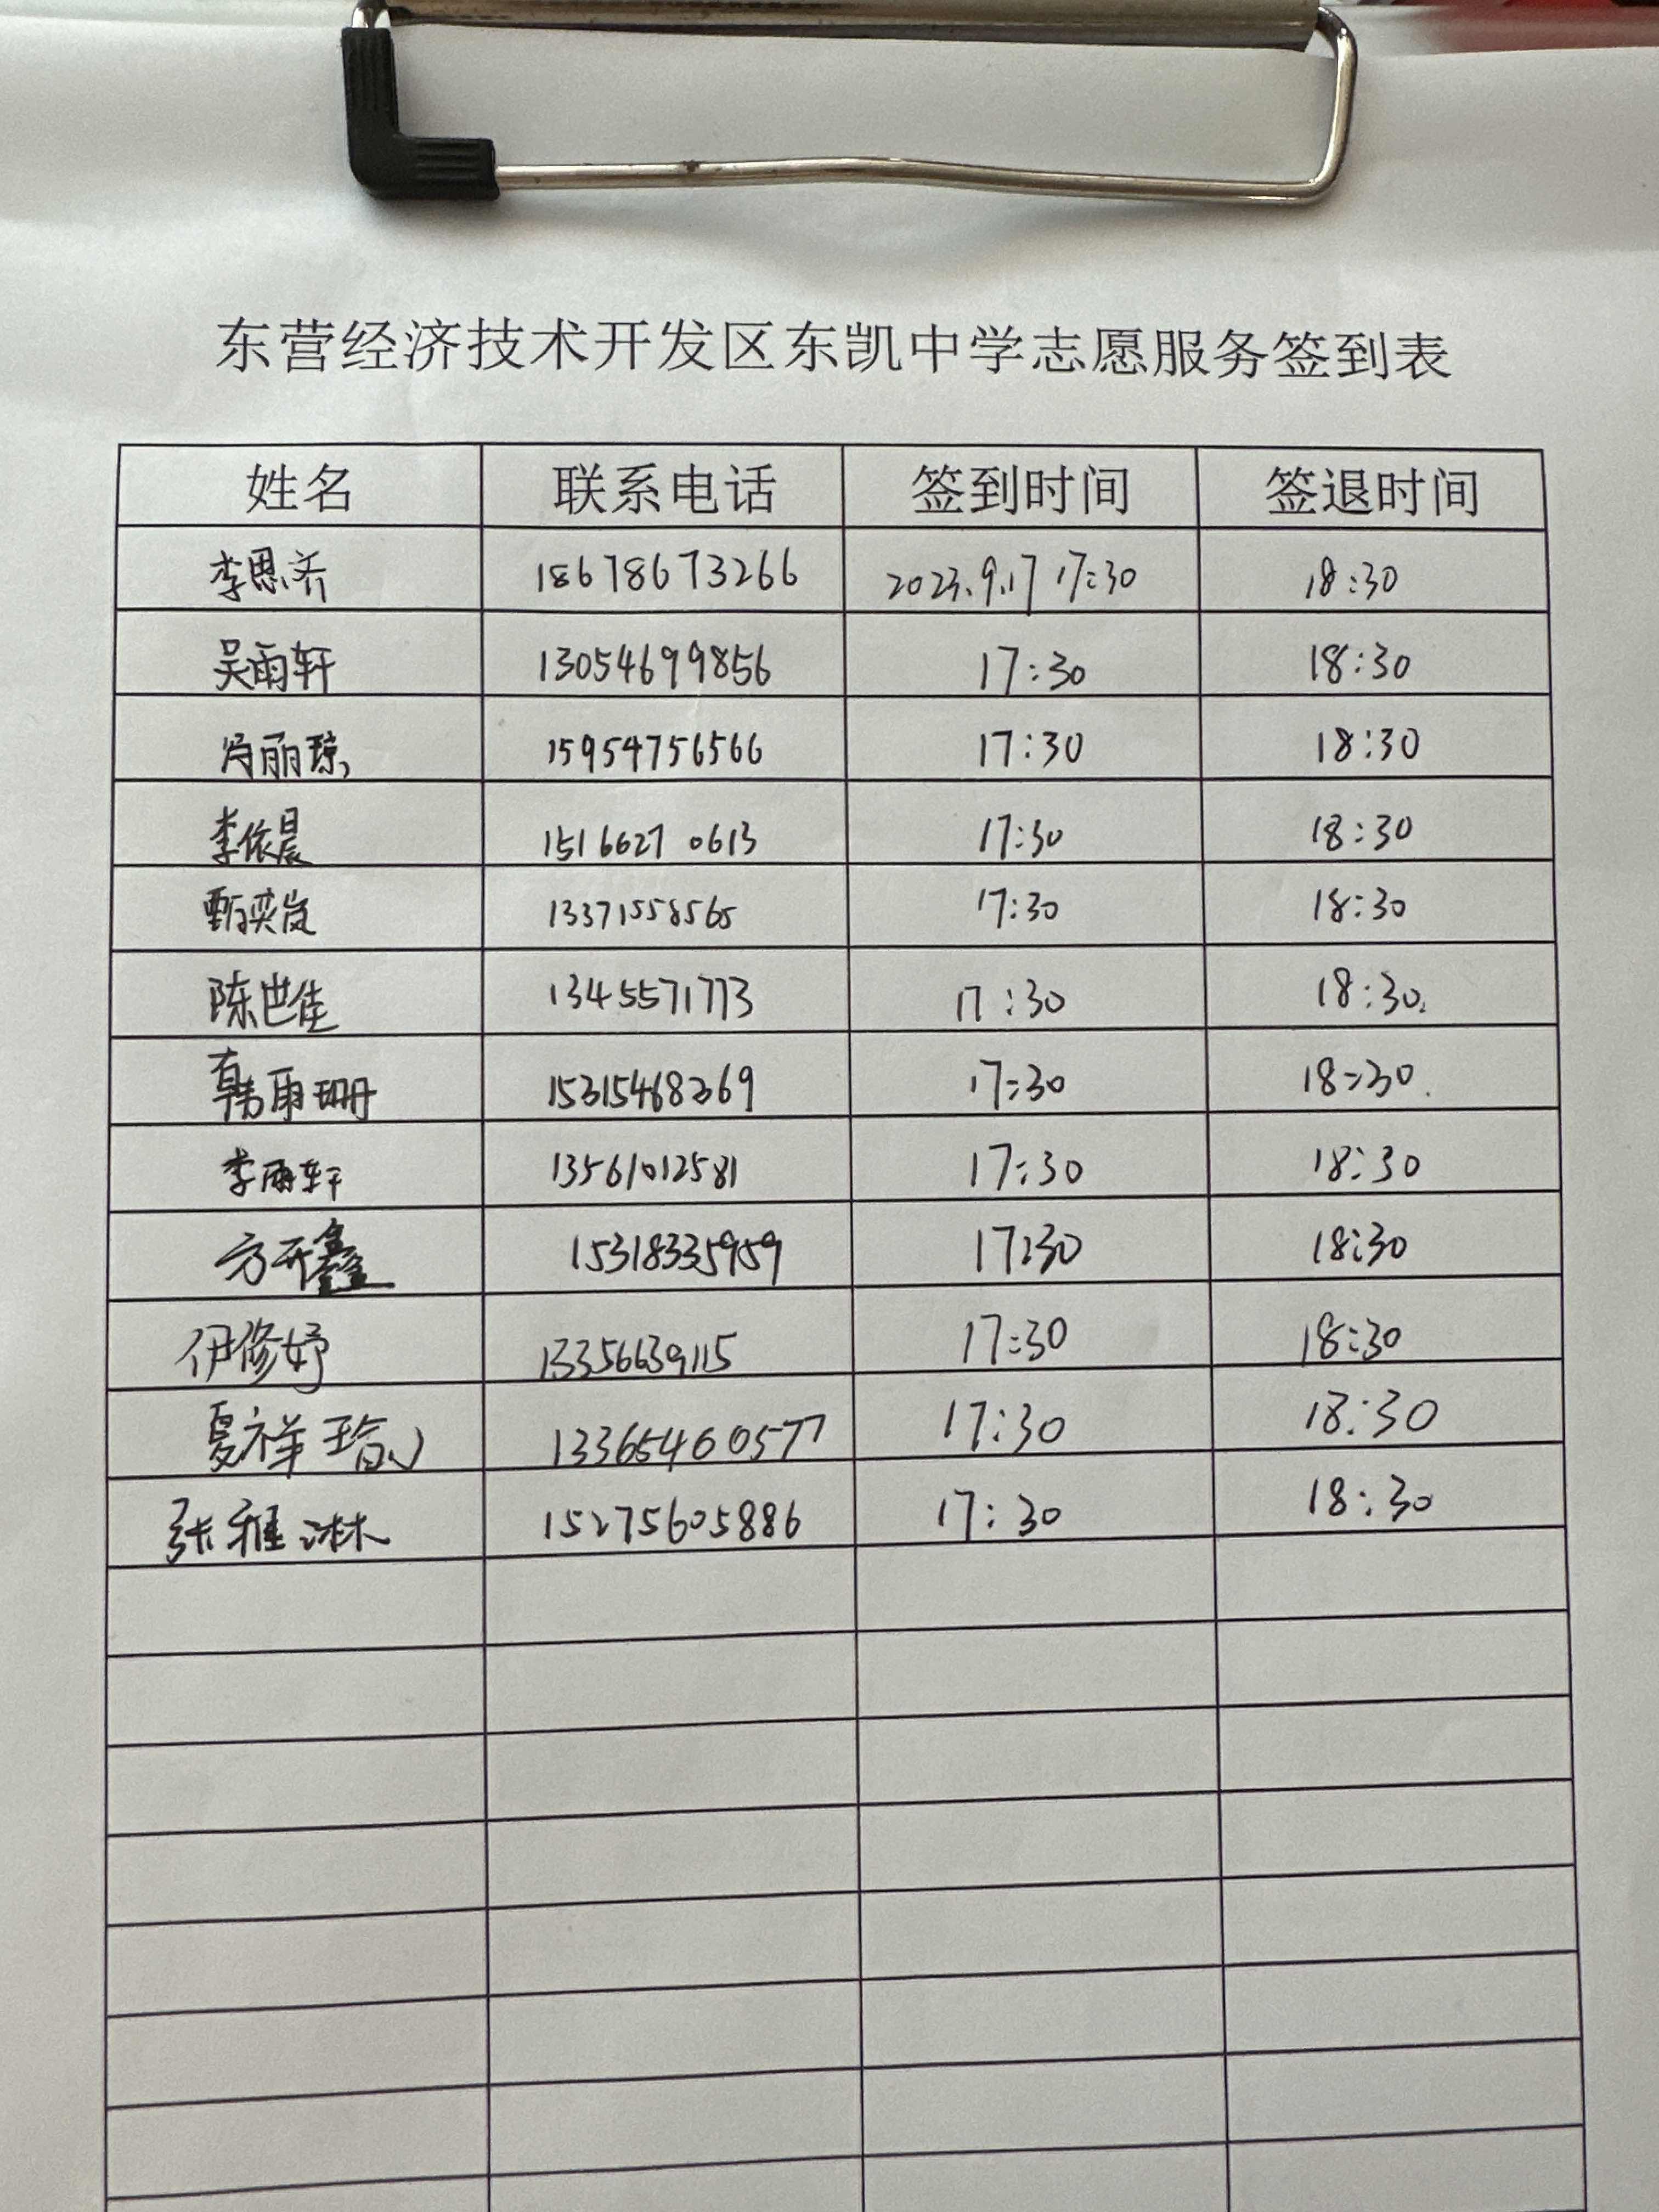 东营经济技术开发区东凯中学志愿服务签到表
姓名 联系电话 签到时间 签退时间
李思齐 18678673266 2023.9.17 17:30 18:30
吴雨轩 13054699856 17:30 18:30
冯丽琼 15954756566 17:30 18:30
李依晨 15166270613 17:30 18:30
甄奕岚 13371558565 17:30 18:30
陈世佳 13455571773 17:30 18:30
韩雨珊 15315468369 17:30 18:30
李雨轩 13561012581 17:30 18:30
方开鑫 15318335959 17:30 18:30
伊修妤 13356639115 17:30 18:30
夏祥瑜 13365460577 17:30 18:30
张雅淋 15275605886 17:30 18:30